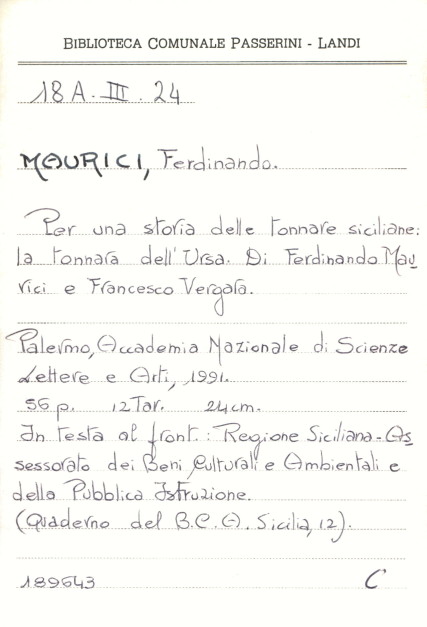 BIBLIOTECA COMUNALE PASSERINI - LANDI
18 A. III. 24
MAURICI, Ferdinando.
Per una storia delle tonnare siciliane:
la tonnara dell'Ursa. Di Ferdinando Mau
rici e Francesco Vergara.
Palermo, Accademia Nazionale di Scienze
Lettere e Arti, 1991.
56 p. 12 Tav. 24 cm.
In testa al front.: Regione Siciliana - As
sessorato dei Beni Culturali e Ambientali e
della Pubblica Istruzione.
(Quaderno del B.C.A. Sicilia, 12).
189643 C